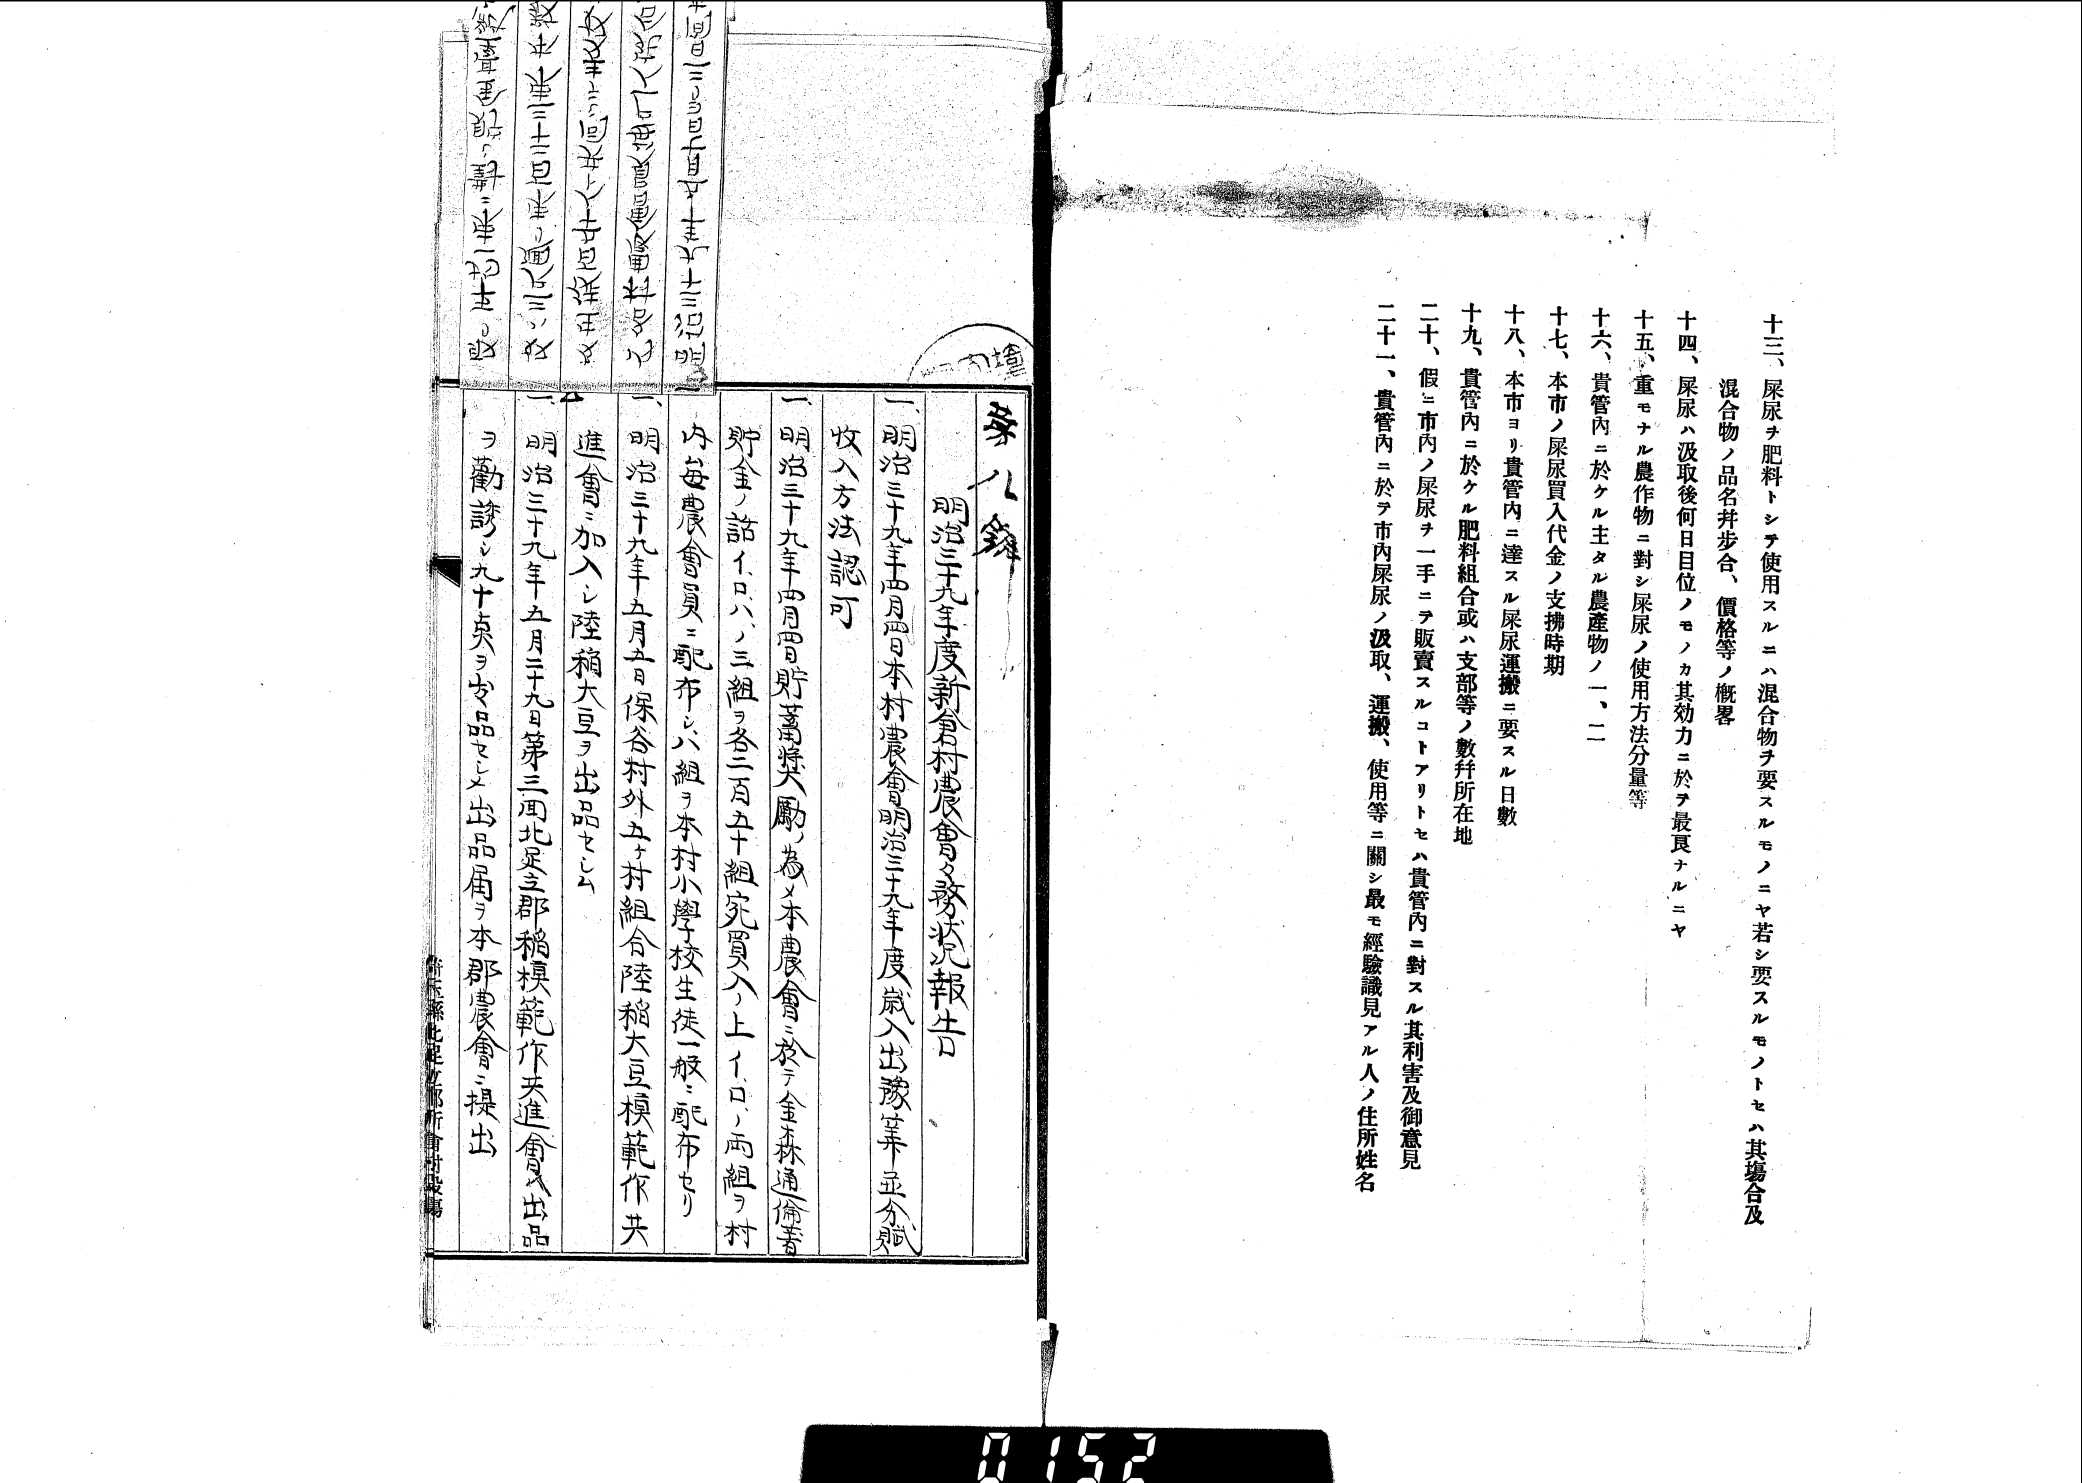 十三、屎尿ヲ肥料トシテ使用スルニハ混合物ヲ要スルモノニヤ若シ要スルモノトセハ其塲合及
混合物ノ品名幷步合、價格等ノ槪畧
十四、屎尿ハ汲取後何日目位ノモノカ其効力ニ於テ最良ナルニヤ
十五、重モナル農作物ニ對シ屎尿ノ使用方法分量等
十六、貴管內ニ於ケル主タル農產物ノ一、二
十七、本市ノ屎尿買入代金ノ支拂時期
十八、本市ヨリ貴管內ニ達スル屎尿運搬ニ要スル日數
十九、貴管內ニ於ケル肥料組合或ハ支部等ノ數幷所在地
二十、假ニ市內ノ屎尿ヲ一手ニテ販賣スルコトアリトセハ貴管內ニ對スル其利害及御意見
二十一、貴管內ニ於テ市內屎尿ノ汲取、運搬、使用等ニ關シ最モ經驗識見アル人ノ住所姓名
第八號
明治三十九年度新倉村農會々務狀況報告
一、明治三十九年四月四日本村農會明治三十九年度歲入出豫算並分賦
收入方法認可
一、明治三十九年四月四日貯蓄獎勵ノ為メ本農會ニ於テ金森通倫著
貯金ノ話イ、ロ、ハ、ノ三組ヲ各二百五十組宛買入ノ上イ、ロ、ノ両組ヲ村
内毎農會員ニ配布シ、ハ組ヲ本村小學校生徒一般ニ配布セリ
一、明治三十九年五月五日保谷村外五ヶ村組合陸稲大豆模範作共
進會ニ加入シ陸稲大豆ヲ出品セシム
一、明治三十九年五月二十九日第三回北足立郡稲模範作共進會ヘ出品
ヲ勸誘シ九十点ヲ出品セシメ出品届ヲ本郡農會ニ提出
埼玉縣北足立郡新倉村役場
0152